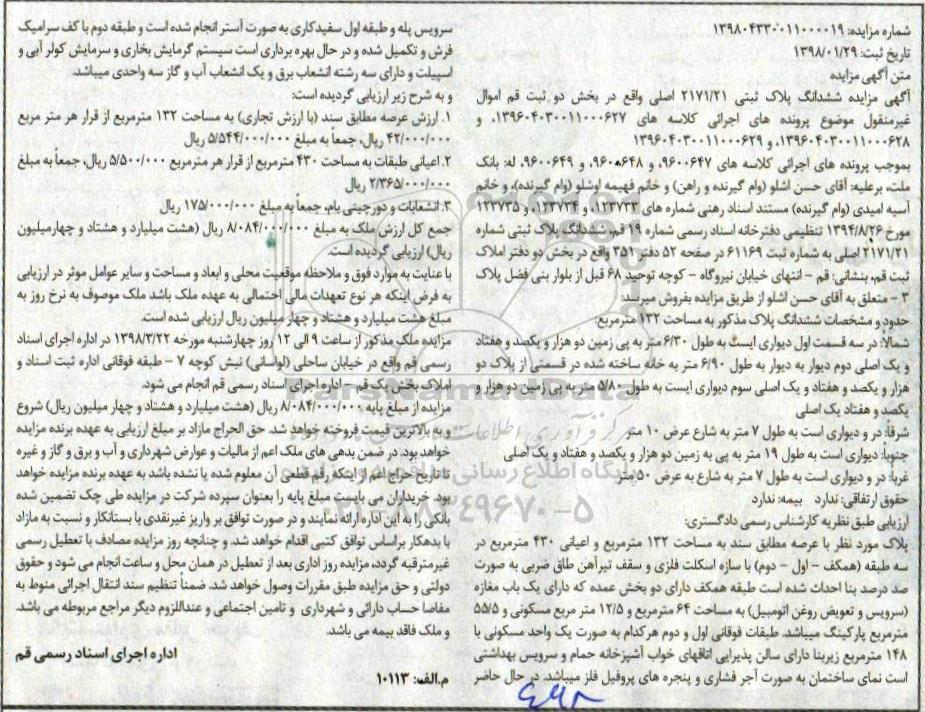 شماره مزایده: ۱۳۹۸۰۴۳۳۰۰۱۱۰۰۰۰۱۹
تاریخ ثبت: ۱۳۹۸/۰۱/۲۹
متن آگهی مزایده
آگهی مزایده ششدانگ پلاک ثبتی ۲۱۷۱/۲۱ اصلی واقع در بخش دو ثبت قم اموال
غیرمنقول موضوع پرونده های اجرائی کلاسه های ۱۳۹۶۰۴۰۳۰۰۱۱۰۰۰۶۲۷، و
۱۳۹۶۰۴۰۳۰۰۱۱۰۰۰۶۲۸، و ۱۳۹۶۰۴۰۳۰۰۱۱۰۰۰۶۲۹
بموجب پرونده های اجرائی کلاسه های ۹۶۰۰۶۴۷، و ۹۶۰۰۶۴۸، و ۹۶۰۰۶۴۹، له: بانک
ملت، برعلیه: آقای حسن اشلو (وام گیرنده و راهن) و خانم فهیمه اوشلو (وام گیرنده)، و خانم
آسیه امیدی (وام گیرنده) مستند اسناد رهنی شماره های ۱۲۳۷۳۳، و ۱۲۳۷۳۴، و ۱۲۳۷۳۵
مورخ ۱۳۹۴/۸/۲۶ تنظیمی دفترخانه اسناد رسمی شماره ۱۹ قم، ششدانگ پلاک ثبتی شماره
۲۱۷۱/۲۱ اصلی به شماره ثبت ۶۱۱۶۹ در صفحه ۵۲ دفتر ۳۵۱ واقع در بخش دو دفتر املاک
ثبت قم، بنشانی: قم - انتهای خیابان نیروگاه - کوچه توحید ۶۸ قبل از بلوار بنی فضل پلاک
۳ - متعلق به آقای حسن اشلو از طریق مزایده بفروش میرسد:
حدود و مشخصات ششدانگ پلاک مذکور به مساحت ۱۳۲ مترمربع:
شمالاً: در سه قسمت اول دیواری ایست به طول ۶/۳۰ متر به پی زمین دو هزار و یکصد و هفتاد
و یک اصلی دوم دیوار به دیوار به طول ۶/۹۰ متر به خانه ساخته شده در قسمتی از پلاک دو
هزار و یکصد و هفتاد و یک اصلی سوم دیواری ایست به طول ۵/۸۰ متر به پی زمین دو هزار و
یکصد و هفتاد یک اصلی
شرقاً: در و دیواری است به طول ۷ متر به شارع عرض ۱۰ متر
جنوباً: دیواری است به طول ۱۹ متر به پی به زمین دو هزار و یکصد و هفتاد و یک اصلی
غرباً: در و دیواری است به طول ۷ متر به شارع به عرض ۵۰ متر
حقوق ارتفاقی: ندارد بیمه: ندارد
ارزیابی طبق نظریه کارشناس رسمی دادگستری:
پلاک مورد نظر با عرصه مطابق سند به مساحت ۱۳۲ مترمربع و اعیانی ۴۳۰ مترمربع در
سه طبقه (همکف - اول - دوم) با سازه اسکلت فلزی و سقف تیرآهن طاق ضربی به صورت
صد درصد بنا احداث شده است طبقه همکف دارای دو بخش عمده که دارای یک باب مغازه
(سرویس و تعویض روغن اتومبیل) به مساحت ۶۴ مترمربع و ۱۲/۵ متر مربع مسکونی و ۵۵/۵
مترمربع پارکینگ میباشد. طبقات فوقانی اول و دوم هرکدام به صورت یک واحد مسکونی با
۱۴۸ مترمربع زیربنا دارای سالن پذیرایی اتاقهای خواب آشپزخانه حمام و سرویس بهداشتی
است نمای ساختمان به صورت آجر فشاری و پنجره های پروفیل فلز میباشد. در حال حاضر
سرویس پله و طبقه اول سفیدکاری به صورت آستر انجام شده است و طبقه دوم با کف سرامیک
فرش و تکمیل شده و در حال بهره برداری است سیستم گرمایش بخاری و سرمایش کولر آبی و
اسپیلت و دارای سه رشته انشعاب برق و یک انشعاب آب و گاز سه واحدی میباشد.
و به شرح زیر ارزیابی گردیده است:
۱. ارزش عرصه مطابق سند (با ارزش تجاری) به مساحت ۱۳۲ مترمربع از قرار هر متر مربع
۴۲/۰۰۰/۰۰۰ ریال، جمعاً به مبلغ ۵/۵۴۴/۰۰۰/۰۰۰ ریال
۲. اعیانی طبقات به مساحت ۴۳۰ مترمربع از قرار هر مترمربع ۵/۵۰۰/۰۰۰ ریال، جمعاً به مبلغ
۲/۳۶۵/۰۰۰/۰۰۰ ریال
۳. انشعابات و دورچینی بام، جمعاً به مبلغ ۱۷۵/۰۰۰/۰۰۰ ریال
جمع کل ارزش ملک به مبلغ ۸/۰۸۴/۰۰۰/۰۰۰ ریال (هشت میلیارد و هشتاد و چهارمیلیون
ریال) ارزیابی گردیده است.
با عنایت به موارد فوق و ملاحظه موقعیت محلی و ابعاد و مساحت و سایر عوامل موثر در ارزیابی
به فرض اینکه هر نوع تعهدات مالی احتمالی به عهده ملک باشد ملک موصوف به نرخ روز به
مبلغ هشت میلیارد و هشتاد و چهار میلیون ریال ارزیابی شده است.
مزایده ملک مذکور از ساعت ۹ الی ۱۲ روز چهارشنبه مورخه ۱۳۹۸/۳/۲۲ در اداره اجرای اسناد
رسمی قم واقع در خیابان ساحلی (لواسانی) نبش کوچه ۷ - طبقه فوقانی اداره ثبت اسناد و
املاک بخش یک قم - اداره اجرای اسناد رسمی قم انجام می شود.
مزایده از مبلغ پایه ۸/۰۸۴/۰۰۰/۰۰۰ ریال (هشت میلیارد و هشتاد و چهار میلیون ریال) شروع
و به بالاترین قیمت فروخته خواهد شد. حق الحراج مازاد بر مبلغ ارزیابی به عهده برنده مزایده
خواهد بود. در ضمن بدهی های ملک اعم از مالیات و عوارض شهرداری و آب و برق و گاز و غیره
تا تاریخ حراج اعم از اینکه رقم قطعی آن معلوم شده یا نشده باشد به عهده برنده مزایده خواهد
بود. خریداران می بایست مبلغ پایه را بعنوان سپرده شرکت در مزایده طی چک تضمین شده
بانکی را به این اداره ارائه نمایند و در صورت توافق بر واریز غیرنقدی با بستانکار و نسبت به مازاد
با بدهکار براساس توافق کتبی اقدام خواهد شد. و چنانچه روز مزایده مصادف با تعطیل رسمی
غیرمترقبه گردد، مزایده روز اداری بعد از تعطیل در همان محل و ساعت انجام می شود و حقوق
دولتی و حق مزایده طبق مقررات وصول خواهد شد. ضمناً تنظیم سند انتقال اجرائی منوط به
مفاصا حساب دارائی و شهرداری و تامین اجتماعی و عنداللزوم دیگر مراجع مربوطه می باشد.
و ملک فاقد بیمه می باشد.
اداره اجرای اسناد رسمی قم
م.الف: ۱۰۱۱۳
ParsNamadData
۰۲۱-۸۸۳۴۹۶۷۰-۵